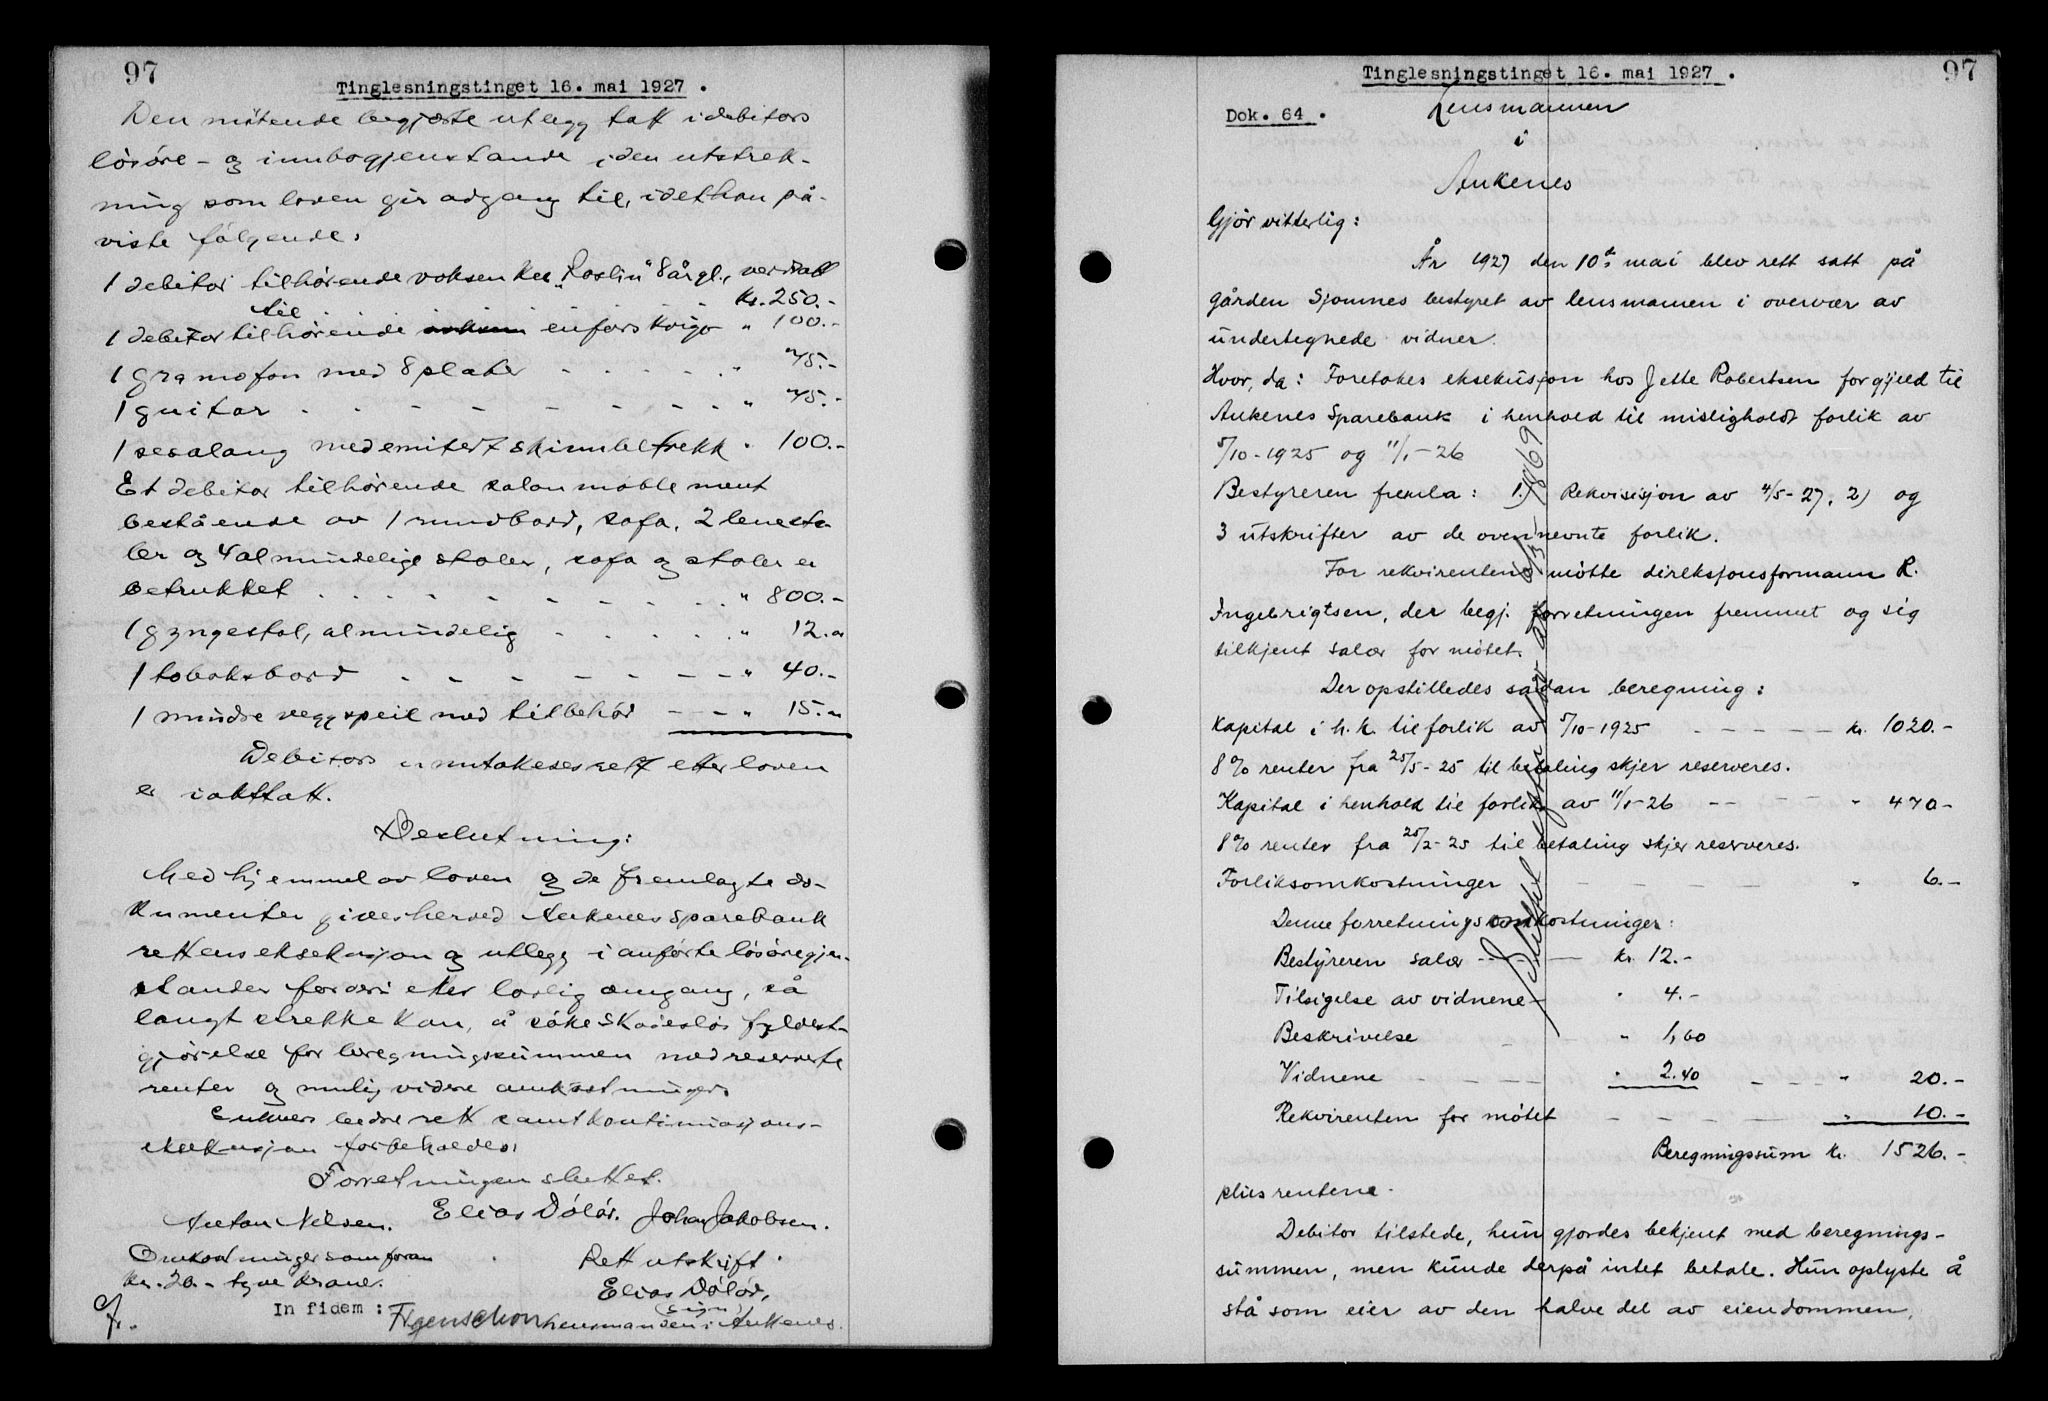 97
Tinglesningstinget 16. mai 1927 .
Den mötende begjærte utlegg tatt i debitors
lösöre- og innbogjenstande i den utstrek-
ning som loven gir adgang til, idet han på-
viste fölgende:
1 debitor tilhörende voksen ku "Roslin" 8 år gl., verdsatt
til . . . . . . . kr. 250.-
1 debitor tilhörende enfors kvige " 100.-
1 gramofon med 8 plater - - - - - " 75.-
1 guitar - - - - - - - - " 75.-
1 sesalong med emitert skinnbetrekk " 100.-
Et debitor tilhörende salonmøblement
bestående av 1 rundbord, sofa, 2 lenesto
ler og 4 almindelige stoler, sofa og stoler er
betrukket . . . . . . . . " 800.-
1 gyngestol, almindelig - - - - - " 12.-
1 tobaksbord - - - - - - - " 40.-
1 mindre veggspeil med tilbehör - - - " 15.-
Debitors unntakelsesrett etter loven
er iakttatt.
Beslutning:
Med hjemmel av loven og de fremlagte do-
kumenter gives herved Ankenes Sparebank
rettens eksekusjon og utlegg i anførte lösöregjen-
stander for deri etter lovlig omgang, så
langt strekke kan, å söke skadeslös fyldest-
gjörelse for beregningssummen med reserverte
renter og mulig videre omkostninger.
Enhver bedre rett samt kontinuasjons-
eksekusjon forbeholdes.
Forretningen sluttet.
Anton Nilsen. Elias Dölör. Johan Jakobsen.
Omkostninger som foran
kr. 20.- tyve kroner.
Rett utskrift.
Elias Dölör,
(sign)
lensmannen i Ankenes.
In fidem :
97
Tinglesningstinget 16. mai 1927 .
Dok. 64 .
Lensmannen
i
Ankenes
Gjör vitterlig:
År 1927 den 10de mai blev rett satt på
gården Sjomnes bestyret av lensmannen i overvær av
undertegnede vidner.
Hvor, da: Foretokes eksekusjon hos Jette Robertsen for gjeld til
Ankenes Sparebank i henhold til misligholdt forlik av
5/10-1925 og 11/1-26
Bestyreren fremla: 1.) Rekvisisjon av 4/5-27, 2) og
3 utskrifter av de ovennevnte forlik.
For rekvirenten møtte direksjonsformann R.
Ingebrigtsen, der begj. forretningen fremmet og sig
tilkjent salær for møtet.
Der opstilledes sådan beregning:
Kapital i h.h. til forlik av 5/10-1925 - - - - - kr. 1020.-
8% renter fra 25/5-25 til betaling skjer reserveres.
Kapital i henhold til forlik av 11/1-26 - - - - " 470-
8% renter fra 25/2-25 til betaling skjer reserveres.
Forliksomkostninger - - - - - " 6.-
Denne forretnings omkostninger:
Bestyreren salær - - - kr. 12.-
Tilsigelse av vidnene - " 4.-
Beskrivelse - " 1,60
Vidnene - - - - " 2.40 - - - " 20.-
Rekvirenten for møtet - - - - - " 10.-
Beregningssum kr. 1526.-
plus rentene.
Debitor tilstede, hun gjordes bekjent med beregnings-
summen, men kunde derpå intet betale. Hun oplyste å
stå som eier av den halve del av eiendommen,